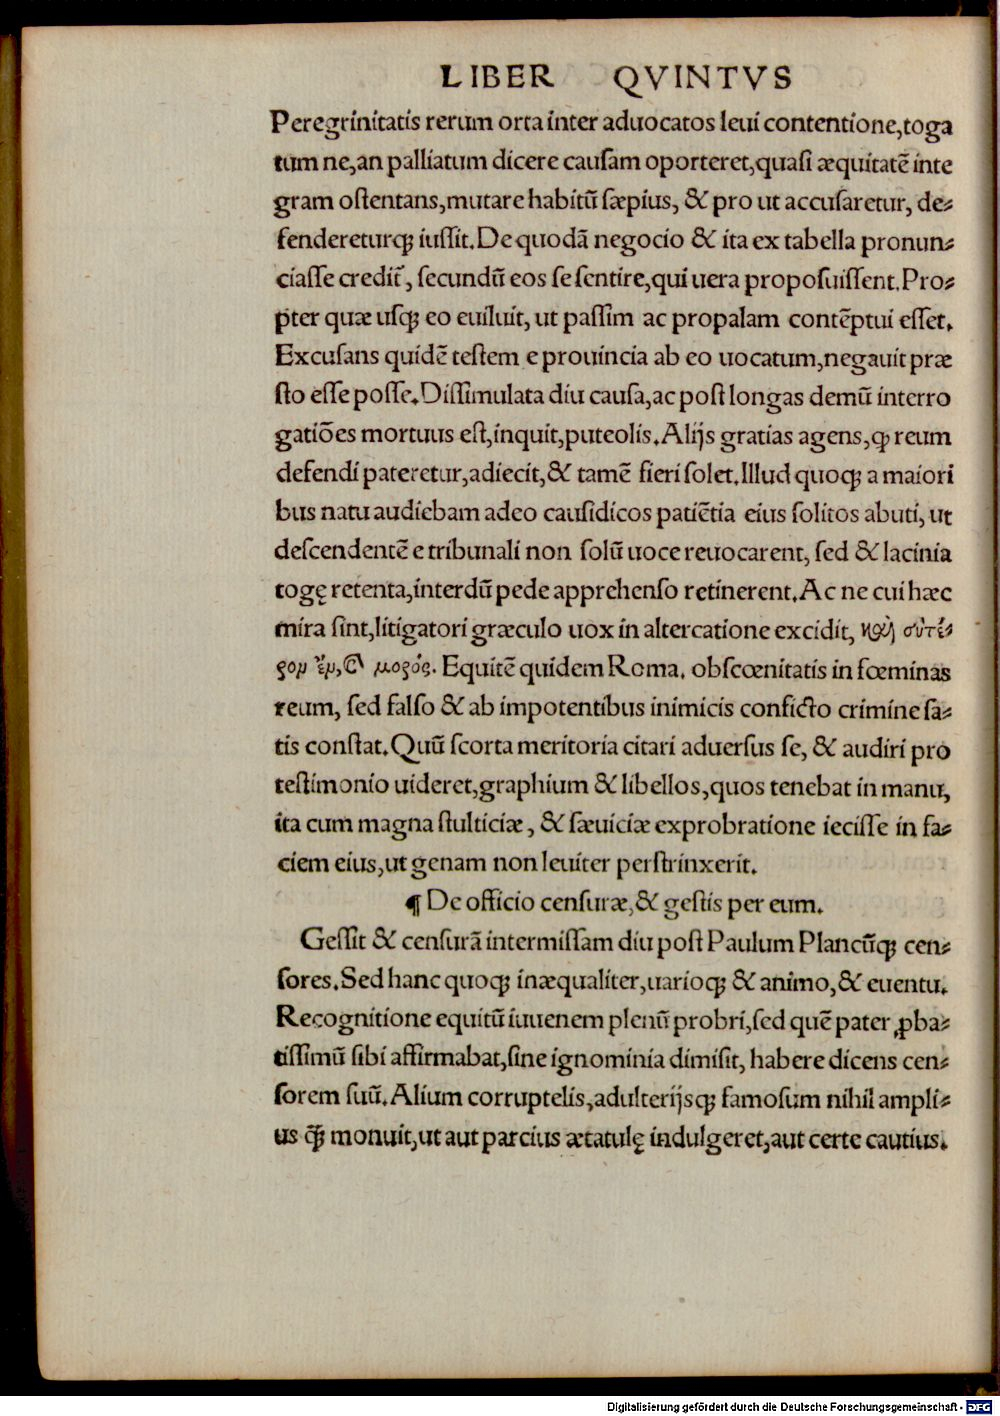 LIBER QVINTVS
Peregrinitatis rerum orta inter aduocatos leui contentione,toga
tum ne,an palliatum dicere causam oporteret,quasi æquitatē inte
gram ostentans,mutare habitū sæpius, & pro ut accusaretur, de⸗
fendereturq; iussit.De quodā negocio & ita ex tabella pronun⸗
ciasse credit̄, secundū eos se sentire,qui uera proposuissent.Pro⸗
pter quæ usq; eo euiluit, ut passim ac propalam contēptui esset.
Excusans quidē testem e prouincia ab eo uocatum,negauit præ
sto esse posse.Dissimulata diu causa,ac post longas demū interro
gatiōes mortuus est,inquit,puteolis.Alijs gratias agens,ꝙ reum
defendi pateretur,adiecit,& tamē fieri solet.Illud quoq; a maiori
bus natu audiebam adeo causidicos patiētia eius solitos abuti, ut
descendentē e tribunali non solū uoce reuocarent, sed & lacinia
togę retenta,interdū pede apprehenso retinerent.Ac ne cui hæc
mira sint,litigatori græculo uox in altercatione excidit, καὶ σὺ γέ⸗
ρων ἔν, μορός. Equitē quidem Roma. obscœnitatis in fœminas
reum, sed falso & ab impotentibus inimicis conficto crimine sa⸗
tis constat.Quū scorta meritoria citari aduersus se, & audiri pro
testimonio uideret,graphium & libellos,quos tenebat in manu,
ita cum magna stulticiæ, & sæuiciæ exprobratione iecisse in fa⸗
ciem eius,ut genam non leuiter perstrinxerit.
¶ De officio censuræ,& gestis per eum.
Gessit & censurā intermissam diu post Paulum Plancūq; cen⸗
sores.Sed hanc quoq; inæqualiter,uarioq; & animo,& euentu.
Recognitione equitū iuuenem plenū probri,sed quē pater ꝓba⸗
tissimū sibi affirmabat,sine ignominia dimisit, habere dicens cen⸗
sorem suū.Alium corruptelis,adulterijsq; famosum nihil ampli⸗
us ꝙ̄ monuit,ut aut parcius ætatulę indulgeret,aut certe cautius.
Digitalisierung gefördert durch die Deutsche Forschungsgemeinschaft - DFG